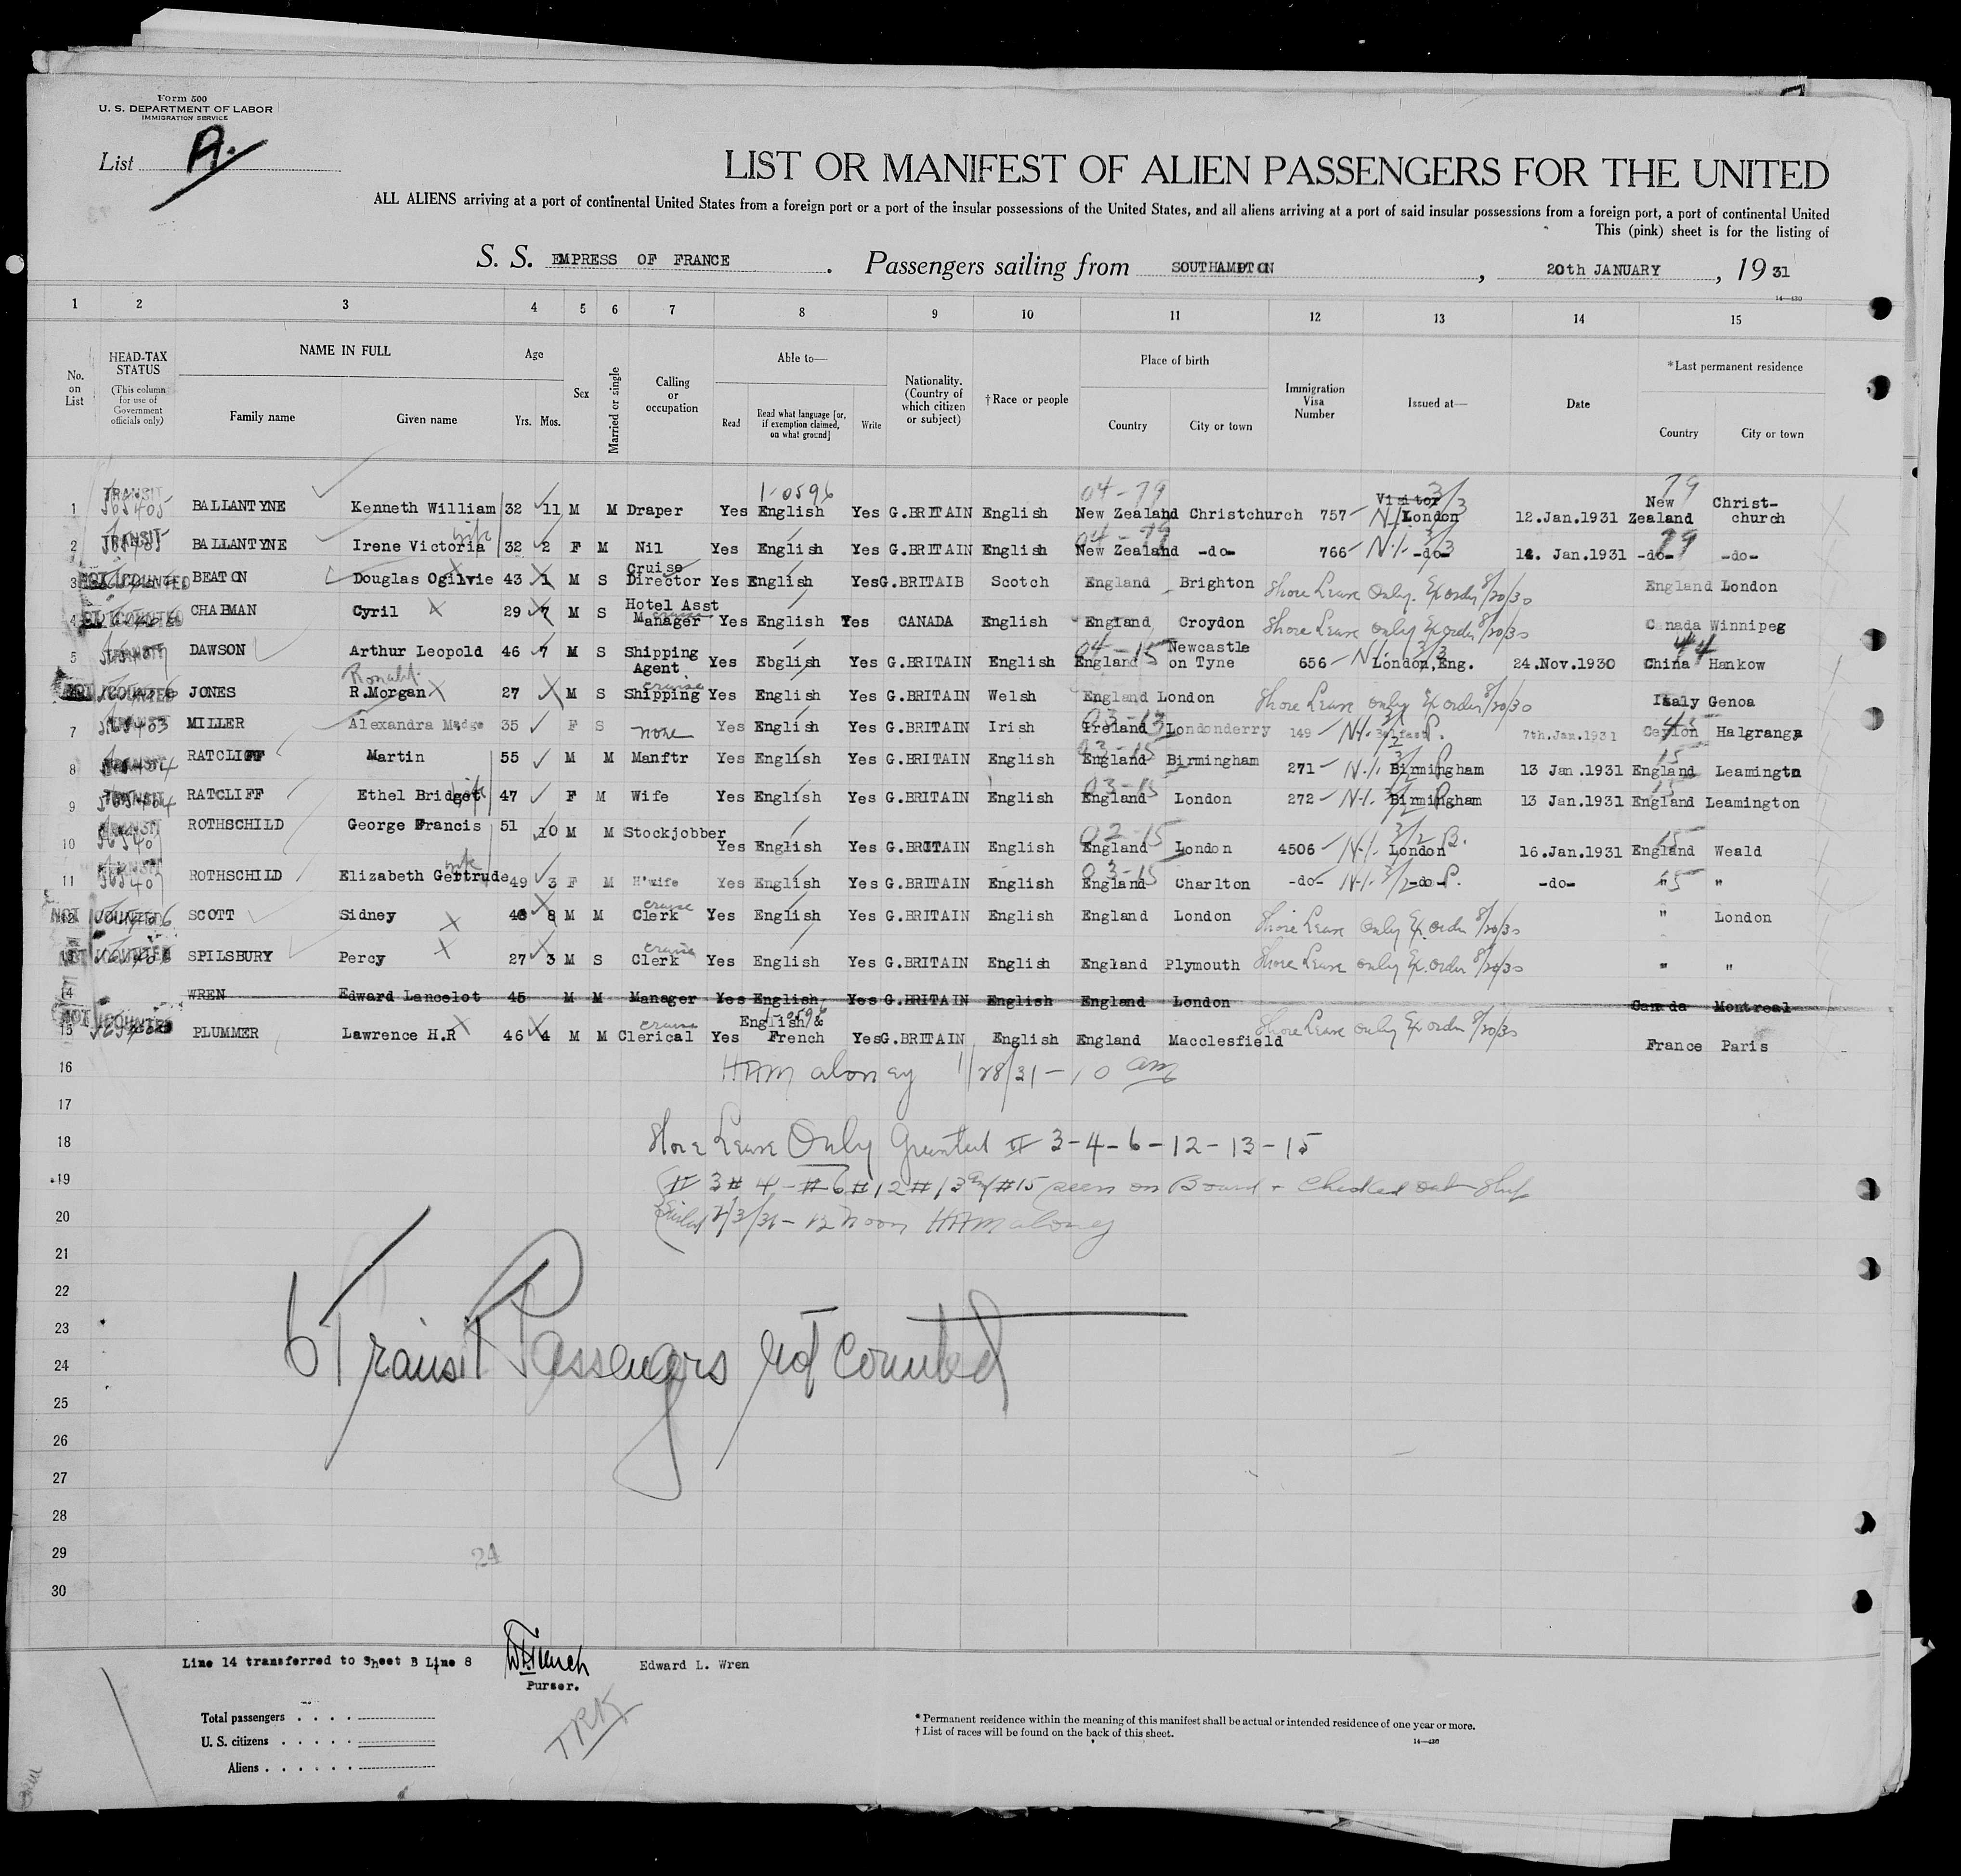 Form 500
U. S. DEPARTMENT OF LABOR
IMMIGRATION SERVICE
List A.
LIST OR MANIFEST OF ALIEN PASSENGERS FOR THE UNITED
ALL ALIENS arriving at a port of continental United States from a foreign port or a port of the insular possessions of the United States, and all aliens arriving at a port of said insular possessions from a foreign port, a port of continental United
This (pink) sheet is for the listing of
S. S. EMPRESS OF FRANCE. Passengers sailing from SOUTHAMPTON, 20th JANUARY, 1931
14—430
1 2 3 4 5 6 7 8 9 10 11 12 13 14 15
No. on List
HEAD-TAX STATUS (This column for use of Government officials only)
NAME IN FULL Family name Given name
Age Yrs. Mos.
Sex
Married or single
Calling or occupation
Able to— Read Read what language [or, if exemption claimed, on what ground] Write
Nationality. (Country of which citizen or subject)
†Race or people
Place of birth Country City or town
Immigration Visa Number
Issued at—
Date
*Last permanent residence Country City or town
1 TRANSIT BALLANTYNE Kenneth William 32 11 M M Draper Yes 1-0596 English Yes G.BRITAIN English 04-79 New Zealand Christchurch 757 Visitor London 12.Jan.1931 79 New Zealand Christ-church
2 TRANSIT BALLANTYNE Irene Victoria wife 32 2 F M Nil Yes English Yes G.BRITAIN English 04-79 New Zealand -do- 766 -do- 14. Jan.1931 -do- 79 -do-
3 NOT COUNTED BEATON Douglas Ogilvie 43 1 M S Cruise Director Yes English Yes G.BRITAIB Scotch England Brighton Shore Leave Only. Ex order 8/20/30 England London
4 CHAPMAN Cyril 29 7 M S Hotel Asst Manager cruise Yes English Yes CANADA English England Croydon Shore Leave Only Ex order 8/20/30 Canada Winnipeg
5 TRANSIT DAWSON Arthur Leopold 46 7 M S Shipping Agent Yes Ebglish Yes G.BRITAIN English 04-15 England Newcastle on Tyne 656 London,Eng. 24.Nov.1930 44 China Hankow
NOT COUNTED JONES Ronald R.Morgan 27 M S Shipping cruise Yes English Yes G.BRITAIN Welsh England London Shore Leave only Ex order 8/20/30 Italy Genoa
7 TRANSIT MILLER Alexandra Madge 35 F S none Yes English Yes G.BRITAIN Irish 03-13 Ireland Londonderry 149 Belfast 7th.Jan.1931 45 Ceylon Halgranga
8 TRANSIT RATCLIFF Martin 55 M M Manftr Yes English Yes G.BRITAIN English 03-15 England Birmingham 271 Birmingham 13 Jan.1931 15 England Leamingtn
9 TRANSIT RATCLIFF Ethel Bridget wife 47 F M Wife Yes English Yes G.BRITAIN English 03-15 England London 272 Birmingham 13 Jan.1931 15 England Leamington
10 TRANSIT ROTHSCHILD George Francis 51 10 M M Stockjobber Yes English Yes G.BRITAIN English 02-15 England London 4506 London 16.Jan.1931 15 England Weald
11 TRANSIT ROTHSCHILD Elizabeth Gertrude wife 49 3 F M H'wife Yes English Yes G.BRITAIN English 03-15 England Charlton -do- -do- -do- " 15 "
12 NOT COUNTED SCOTT Sidney 46 8 M M cruise Clerk Yes English Yes G.BRITAIN English England London Shore Leave Only Ex. order 8/20/30 " London
13 NOT COUNTED SPILSBURY Percy 27 3 M S cruise Clerk Yes English Yes G.BRITAIN English England Plymouth Shore Leave only Ex. order 8/20/30 " "
14 WREN Edward Lancelot 45 M M Manager Yes English Yes G.BRITAIN English England London Canada Montreal
15 NOT COUNTED PLUMMER Lawrence H.R 46 4 M M cruise Clerical Yes English & French Yes G.BRITAIN English England Macclesfield Shore Leave Only Ex order 8/20/30 France Paris
16 HAMaloney 1/28/31 - 10 am
17
18 Shore Leave Only Granted # 3-4-6-12-13-15
19 # 3 # 4 - # 6 # 12 # 13 and #15 seen on Board + Checked out Ship
20 2/3/31 - 12 noon HAMaloney
21
22
23
24 6 Transit Passengers not counted
25
26
27
28
29 24
30
Line 14 transferred to Sheet B Line 8
Purser.
Edward L. Wren
TRK
Total passengers
U. S. citizens
Aliens
* Permanent residence within the meaning of this manifest shall be actual or intended residence of one year or more.
† List of races will be found on the back of this sheet.
14—430